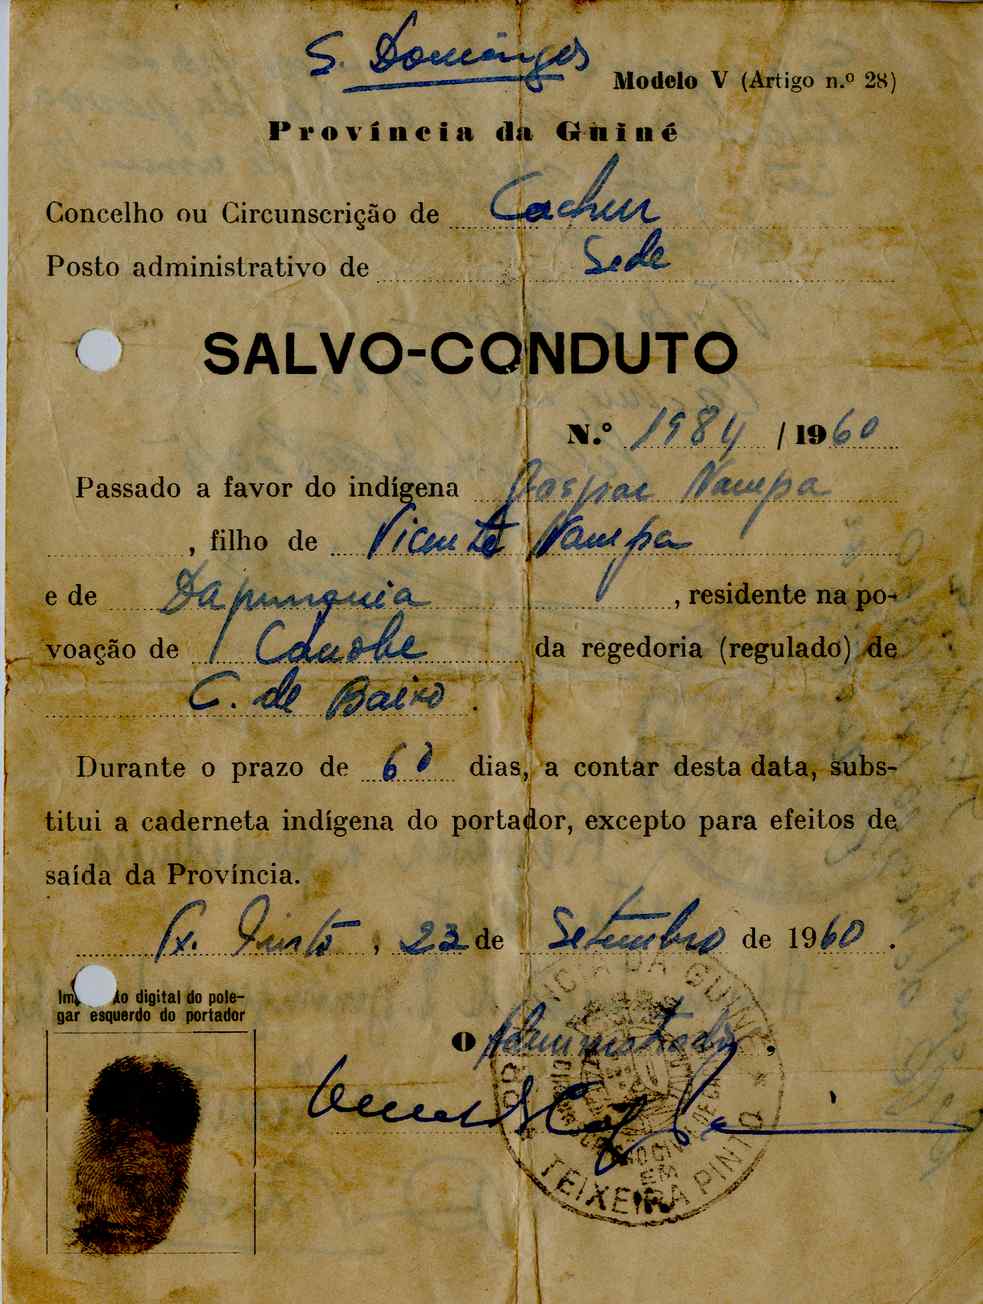 S. Domingos
Modelo V (Artigo n.º 28)
Província da Guiné
Concelho ou Circunscrição de Cacheu
Posto administrativo de Sede
SALVO-CONDUTO
N.º 1984 / 1960
Passado a favor do indígena Gaspar Nampa
, filho de Vicente Nampa
e de Dapunguia, residente na po-
voação de Canobe da regedoria (regulado) de
C. de Baixo.
Durante o prazo de 60 dias, a contar desta data, subs-
titui a caderneta indígena do portador, excepto para efeitos de
saída da Província.
Tx. Pinto, 23 de Setembro de 1960.
Impressão digital do pole-
gar esquerdo do portador
O Administrador,
PROVÍNCIA DA GUINÉ
EM
TEIXEIRA PINTO